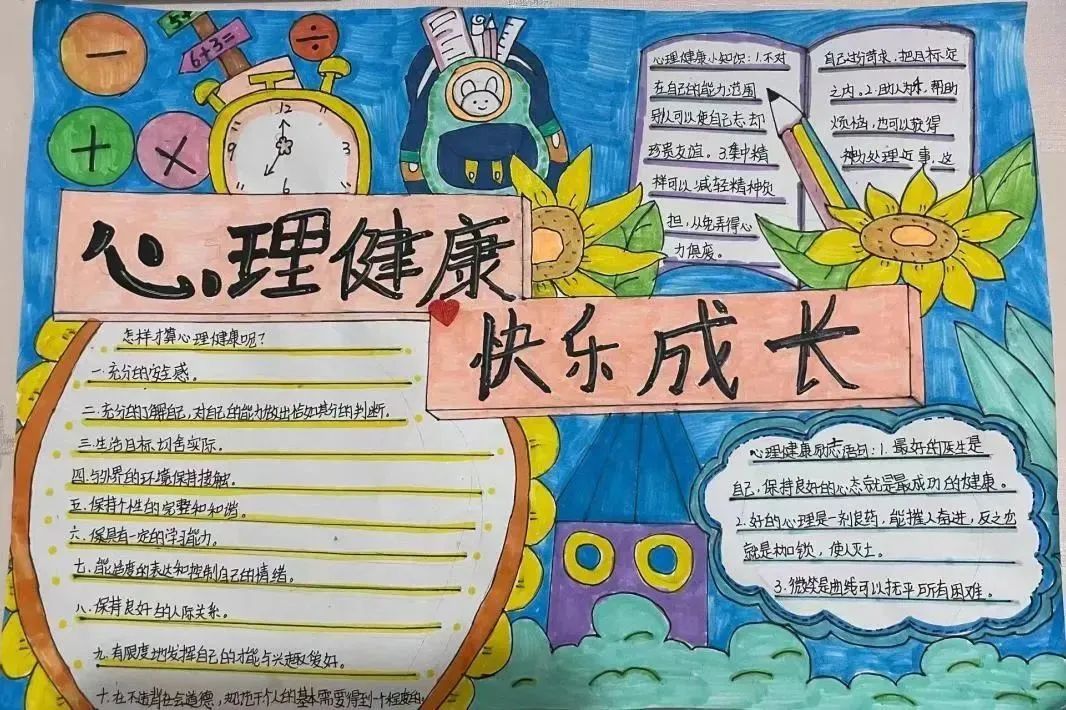 5+
6+3=
12
9
3
6
心理健康
快乐成长
心理健康小知识：1.不对
在自己的能力范围
别人可以使自己忘却
珍贵友谊。3.集中精
样可以减轻精神负
担，从免弄得心
力俱废。
自己过份苛求，把目标定
之内。2.助人为乐，帮助
烦恼，也可以获得
处理近事，这
怎样才算心理健康呢？
一.充分的安全感。
二.充分的了解自己，对自己的能力做出恰如其分的判断。
三.生活目标切合实际。
四.与外界的环境保持接触。
五.保持个性的完整和和谐。
六.保具有一定的学习能力。
七.能适度的表达和控制自己的情绪。
八.保持良好的人际关系。
九.有限度地发挥自己的才能与兴趣爱好。
十.在不违背社会道德，规范下个人的基本需要得到一个程度的。
心理健康励志语句：1.最好的医生是
自己，保持良好的心态就是最成功的健康。
2.好的心理是一剂良药，能摧人奋进，反之亦
就是枷锁，使人灭亡。
3.微笑是曲线可以抚平所有困难。